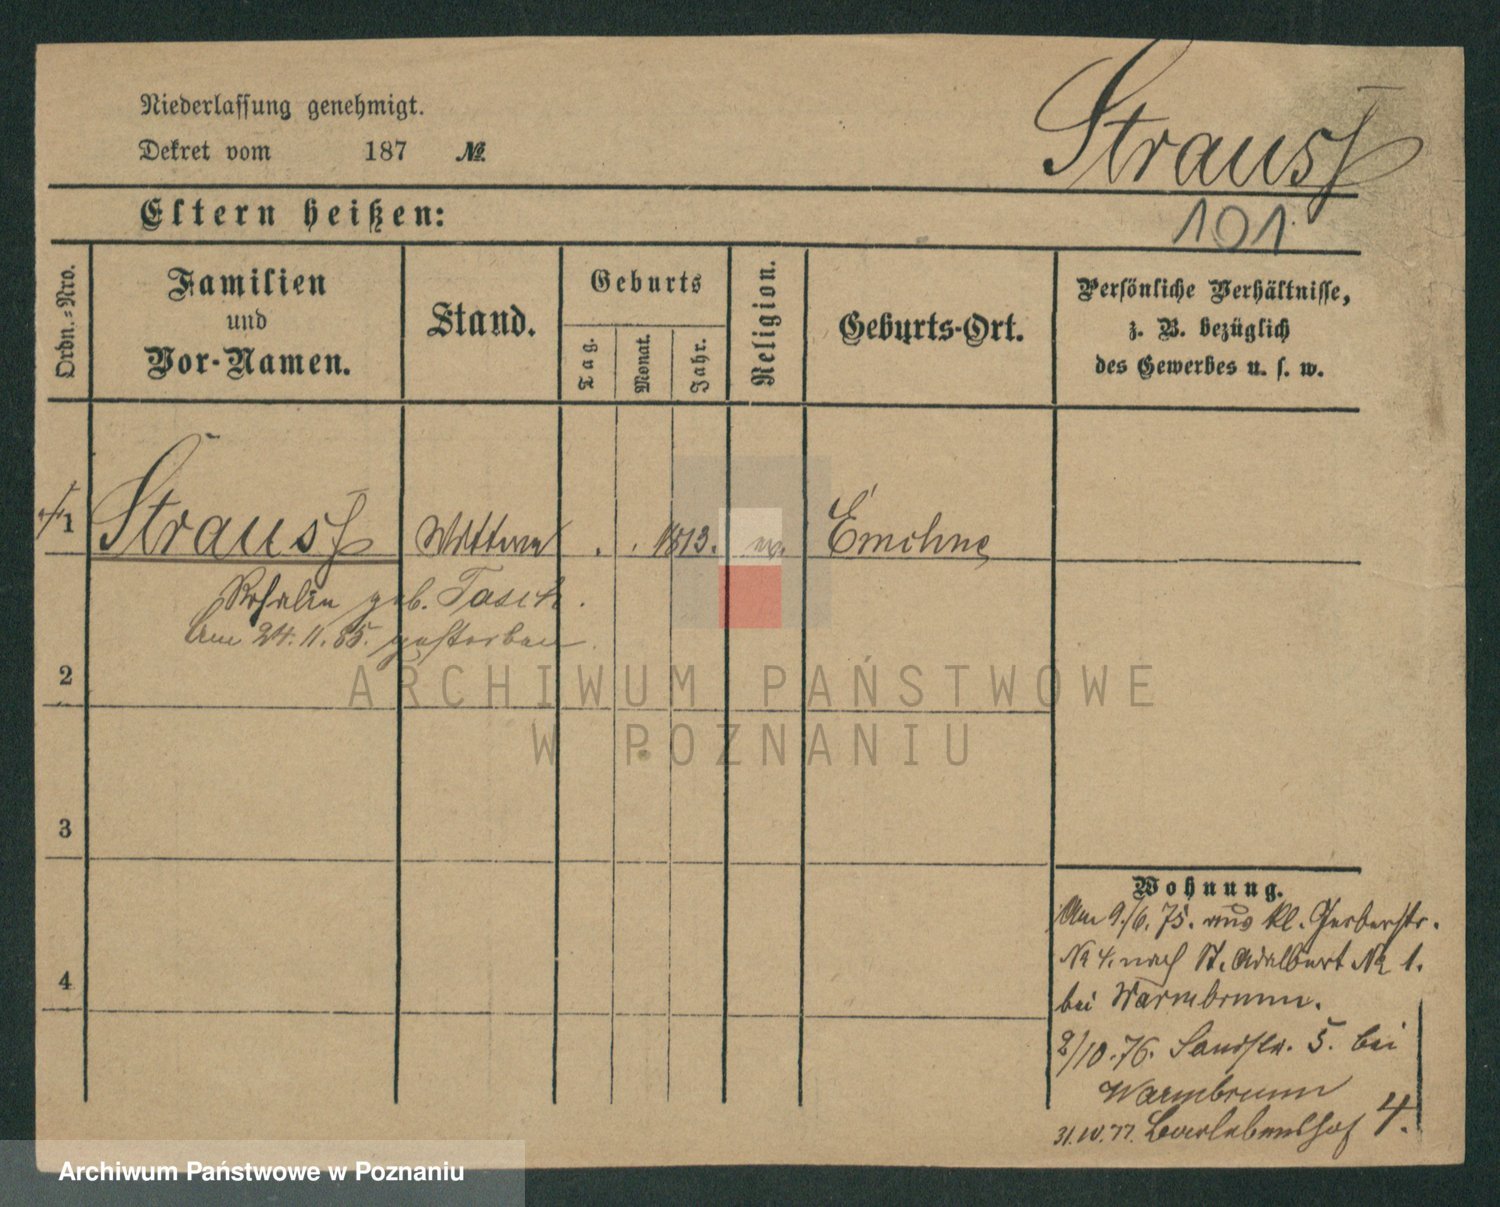 Niederlassung genehmigt.
Dekret vom 187 №
Strauss
Eltern heißen:
101.
Ordn.-Nro.
Familien
und
Vor-Namen.
Stand.
Geburts
Tag.
Monat.
Jahr.
Religion.
Geburts-Ort.
Persönliche Verhältnisse,
z. B. bezüglich
des Gewerbes u. s. w.
1 Strauss Wittwe . . 1813. ev. Emchne
Rosalie geb. Tasch.
Am 24.11.85. gestorben.
2
3
4
Wohnung.
Am 9./6.75. aus kl. Gerberstr.
№ 4. nach St. Adalbert № 1.
bei Warmbrunn.
2/10.76. Sandstr. 5. bei
Warmbrunn
31.10.77. 4.
ARCHIWUM PAŃSTWOWE
W POZNANIU
Archiwum Państwowe w Poznaniu